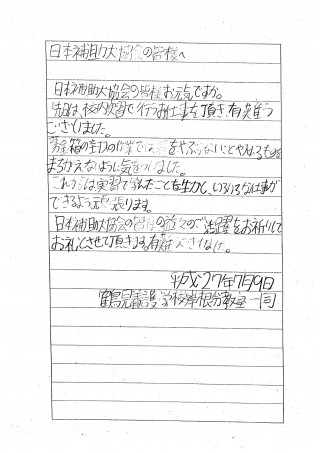 日本補助犬協会の皆様へ
日本補助犬協会の皆様お元気ですか。
先日は、校内実習で行うお仕事を頂き、有難う
ございました。
募金箱の封の作業では をやぶらないことや入れるものを
まちがえないように気をつけました。
これからは実習で学んだことを生かし、いろいろな仕事が
できるよう頑張ります。
日本補助犬協会の皆様の益々のご活躍をお祈りして
お礼とさせて頂きます。有難うございました。
平成27年7月9日
鶴見養護学校岸根分教室一同